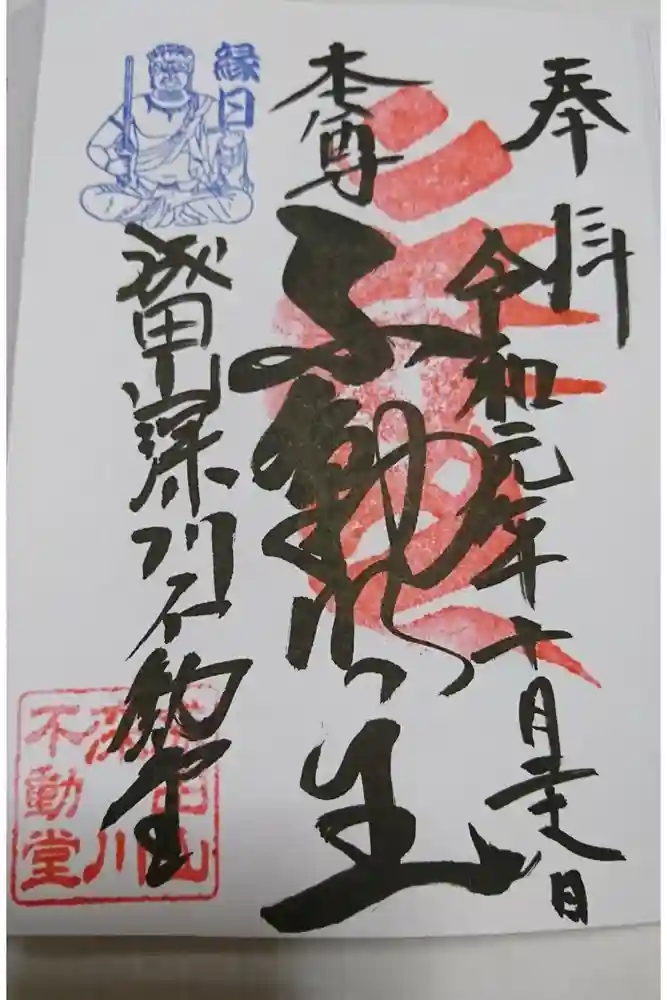 奉拝
令和元年十月廿八日
本尊
不動明王
縁日
成田山深川不動堂
成田山
深川
不動堂